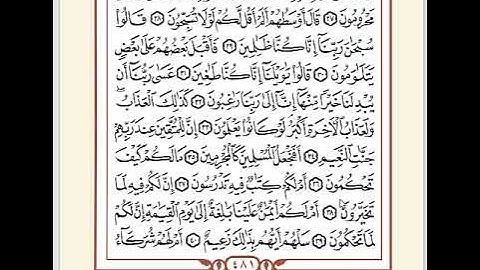 مَحْرُومُونَ ٢٧ قَالَ أَوْسَطُهُمْ أَلَمْ أَقُل لَّكُمْ لَوْلَا تُسَبِّحُونَ ٢٨ قَالُوا۟
سُبْحَٰنَ رَبِّنَآ إِنَّا كُنَّا ظَٰلِمِينَ ٢٩ فَأَقْبَلَ بَعْضُهُمْ عَلَىٰ بَعْضٍ
يَتَلَٰوَمُونَ ٣٠ قَالُوا۟ يَٰوَيْلَنَآ إِنَّا كُنَّا طَٰغِينَ ٣١ عَسَىٰ رَبُّنَآ أَن
يُبْدِلَنَا خَيْرًا مِّنْهَآ إِنَّآ إِلَىٰ رَبِّنَا رَٰغِبُونَ ٣٢ كَذَٰلِكَ ٱلْعَذَابُ ۖ
وَلَعَذَابُ ٱلْءَاخِرَةِ أَكْبَرُ ۚ لَوْ كَانُوا۟ يَعْلَمُونَ ٣٣ إِنَّ لِلْمُتَّقِينَ عِندَ رَبِّهِمْ
جَنَّٰتِ ٱلنَّعِيمِ ٣٤ أَفَنَجْعَلُ ٱلْمُسْلِمِينَ كَٱلْمُجْرِمِينَ ٣٥ مَا لَكُمْ كَيْفَ
تَحْكُمُونَ ٣٦ أَمْ لَكُمْ كِتَٰبٌ فِيهِ تَدْرُسُونَ ٣٧ إِنَّ لَكُمْ فِيهِ لَمَا
تَخَيَّرُونَ ٣٨ أَمْ لَكُمْ أَيْمَٰنٌ عَلَيْنَا بَٰلِغَةٌ إِلَىٰ يَوْمِ ٱلْقِيَٰمَةِ ۙ إِنَّ لَكُمْ
لَمَا تَحْكُمُونَ ٣٩ سَلْهُمْ أَيُّهُم بِذَٰلِكَ زَعِيمٌ ٤٠ أَمْ لَهُمْ شُرَكَآءُ
٤٨١